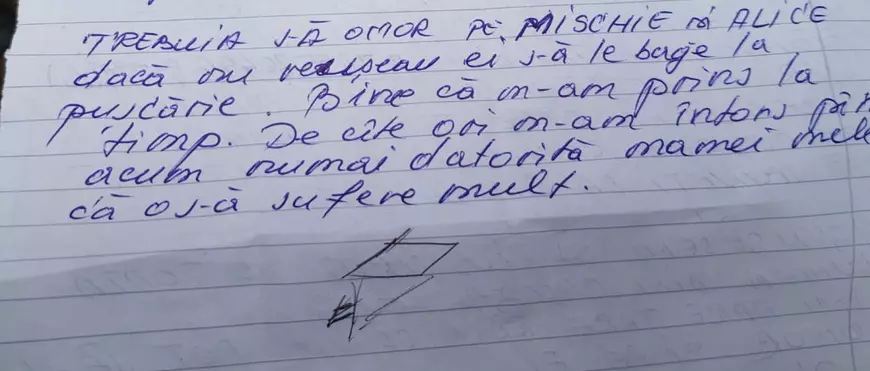 TREBUIA S-Ă OMOR PE MISCHIE și ALICE
dacă nu reuseau ei s-ă le bage la
pușcărie. Bine că m-am prins la
timp. De cîte ori m-am întors păn
acum numai datorită mamei mele
că o s-ă sufere mult.